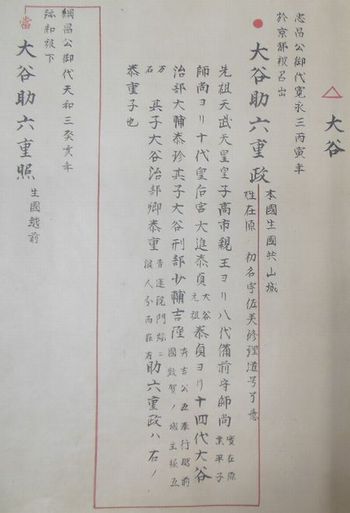 △ 大谷
忠昌公御代寛永三丙寅年
於京都被召出
大谷助六重政
本國生國共山城
姓在原 初名宇佐美修理道号了意
先祖天武天皇皇子高市親王ヨリ八代備前守師尚 実在原業平子
師尚ヨリ十代皇后宮大進泰貞 大谷元祖 泰貞ヨリ十四代大谷
治部大輔泰珍其子大谷刑部少輔吉隆 秀吉公五奉行越前國敦賀ノ城主後五
万石 其子大谷治部卿泰重 青蓮院門跡ニ 助六重政ハ右ノ
泰重子也
綱昌公御代天和三癸亥年
跡知被下
當 大谷助六重照 生國越前